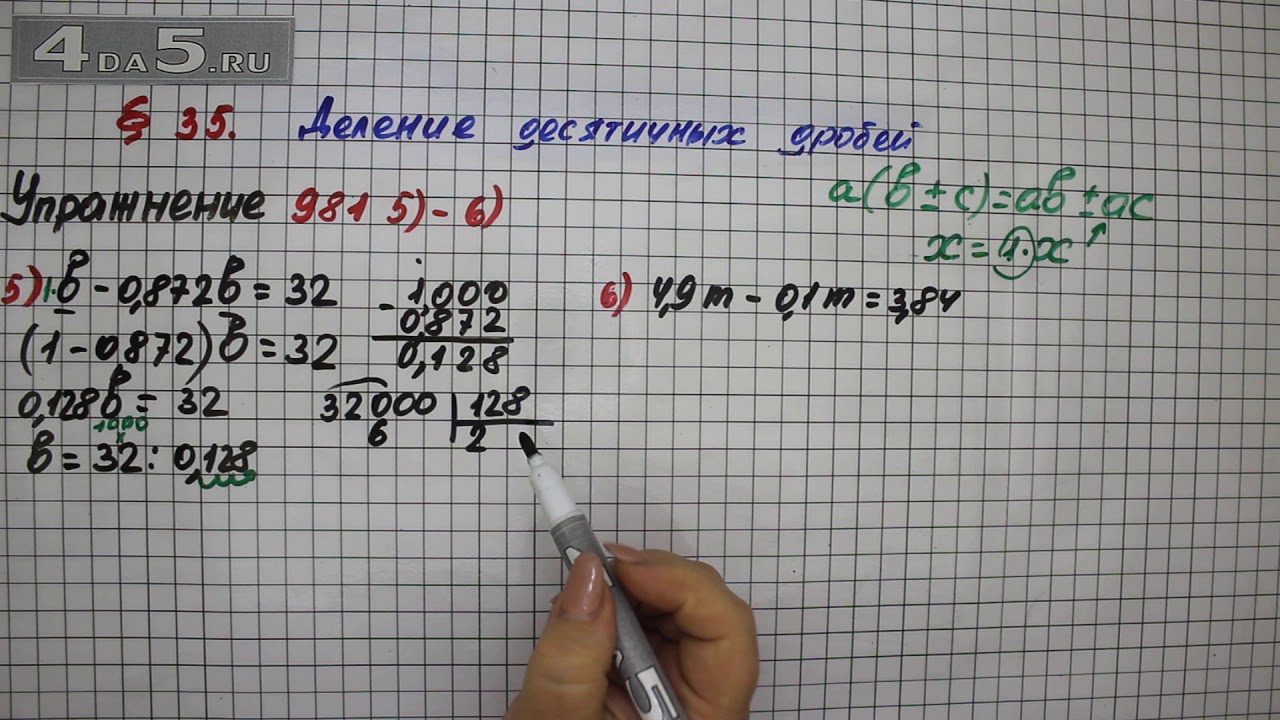 4DA5.RU
§ 35. Деление десятичных дробей
Упражнение 981 5) - 6)
a(b ± c) = ab ± ac
x = 1·x
5) 1·b - 0,872b = 32
(1 - 0,872)b = 32
0,128b = 32
1000
b = 32 : 0,128
- 1,000
0,872
0,128
32000 | 128
6 2
6) 4,9m - 0,1m = 3,84